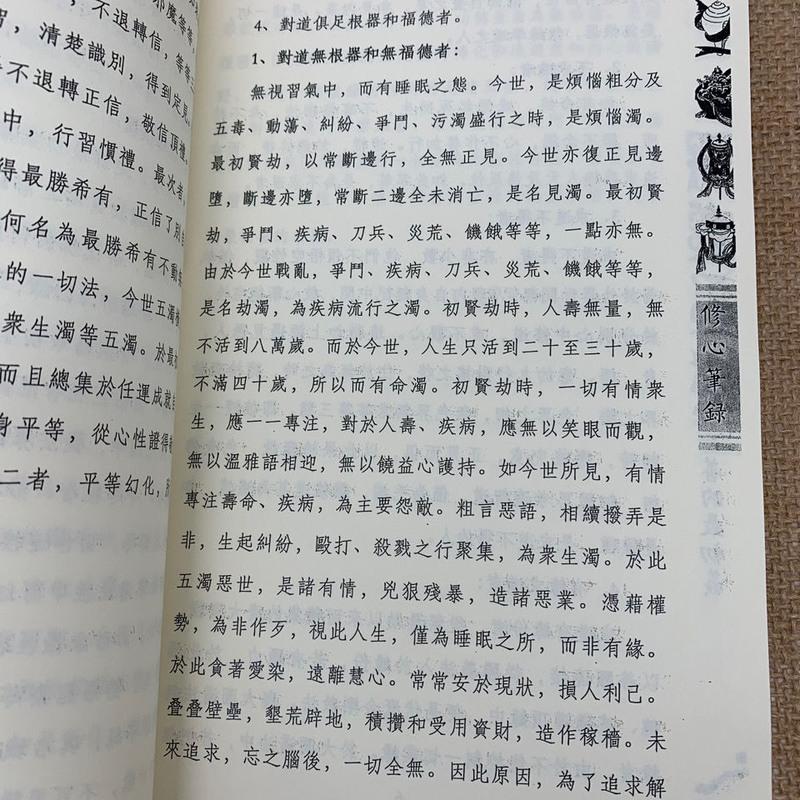 邪魔等等，
，不退轉信，等等二
習，清楚識別，得到定見
不退轉正信，敬信頂禮
中，行習慣禮。最次者，
得最勝希有，正信了別
何名為最勝希有不動
的一切法，今世五濁
眾生濁等五濁。於最
而且總集於任運成就
身平等，從心性證得
二者，平等幻化，所
4、對道俱足根器和福德者。
1、對道無根器和無福德者：
無視習氣中，而有睡眠之態。今世，是煩惱粗分及
五毒、動蕩、糾紛、爭鬥、污濁盛行之時，是煩惱濁。
最初賢劫，以常斷邊行，全無正見。今世亦復正見邊
墮，斷邊亦墮，常斷二邊全未消亡，是名見濁。最初賢
劫，爭鬥、疾病、刀兵、災荒、饑餓等等，一點亦無。
由於今世戰亂，爭鬥、疾病、刀兵、災荒、饑餓等等，
是名劫濁，為疾病流行之濁。初賢劫時，人壽無量，無
不活到八萬歲。而於今世，人生只活到二十至三十歲，
不滿四十歲，所以而有命濁。初賢劫時，一切有情衆
生，應一一專注，對於人壽、疾病，應無以笑眼而觀，
無以溫雅語相迎，無以饒益心護持。如今世所見，有情
專注壽命、疾病，為主要怨敵。粗言惡語，相續撥弄是
非，生起糾紛，毆打、殺戮之行聚集，為衆生濁。於此
五濁惡世，是諸有情，兇狠殘暴，造諸惡業。憑藉權
勢，為非作歹，視此人生，僅為睡眠之所，而非有緣。
於此貪著愛染，遠離慧心。常常安於現狀，損人利己。
疊疊壁壘，墾荒辟地，積攢和受用資財，造作稼穡。未
來追求，忘之腦後，一切全無。因此原因，為了追求解
修心筆錄